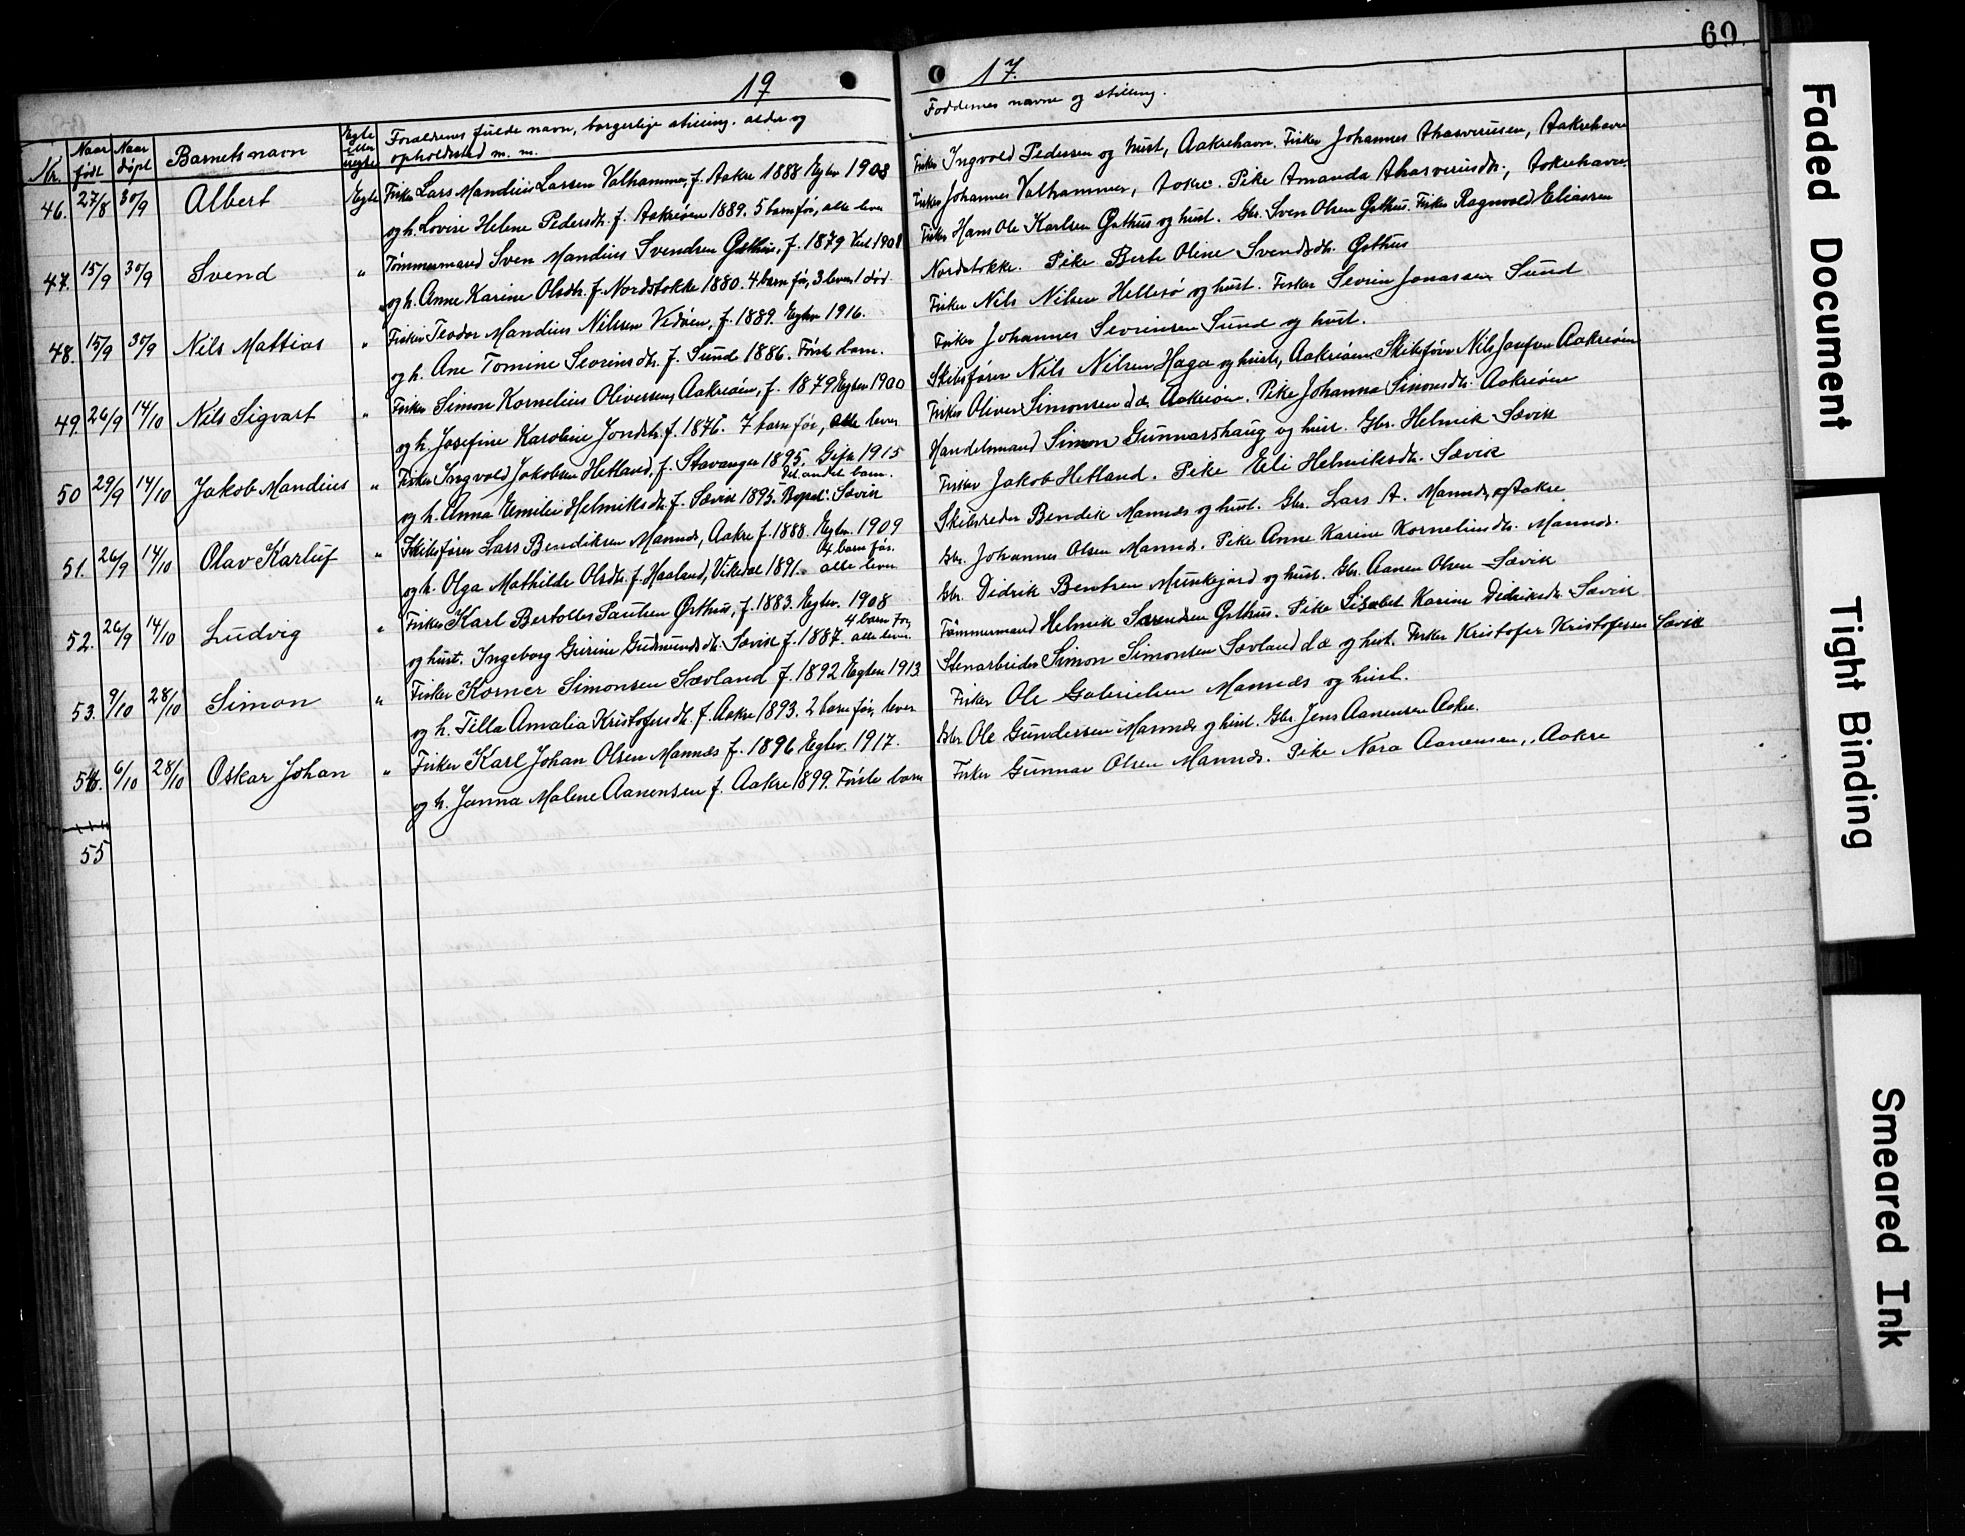 19
17.
69.
Nr.
Naar født
Naar døpt
Barnets navn
Egte Eller uegte
Foraldrenes fulde navn, borgerlige stilling, alder og opholdssted m. m.
Faddernes navne og stilling.
46. 27/8 30/9 Albert Egte Fisker Lars Mandius Larsen Valhammer, f. Aakre 1888 Egtev 1908
og h. Lovise Helene Pedersdtr. f. Aakreøen 1889. 5 barn før, alle lever
Fisker Ingvold Pedersen og hust, Aakrehavn. Fisker Johannes Ahasverusen, Aakrehavn
Fisker Johannes Valhammer, Aakre. Pike Amanda Ahasverusdtr., Aakrehavn.
47. 15/9 30/9 Svend " Tømmermand Sven Mandius Svendsen Østhus, f. 1879 Viel 1908
og h. Anne Karine Olsdtr. f. Nordstokke 1880. 4 barn før, 3 lever 1 død
Fisker Hans Ole Karlsen Østhus og hust. Gbr. Sven Olsen Østhus. Fisker Ragnvald Eliassen
Nordstokke. Pike Berte Oline Svendsdtr. Østhus
48. 15/9 30/9 Nils Mattias " Fisker Teodor Mandius Nilssen Vedøen, f. 1889. Egtev 1916.
og h. Ane Tomine Sevrinsdtr. f. Sund 1886. Første barn.
Fisker Nils Nilsen Hellesø og hust. Fisker Sevrin Jonassen Sund
Fisker Johannes Sevrinsen Sund og hust.
49. 26/9 14/10 Nils Sigvart " Fisker Simon Kornelius Oliversen, Aakreøen, f. 1879 Egtev 1900
og h. Josefine Karoline Jonsdtr. f. 1876. 7 barn før, alle lever
Skibsfører Nils Nilsen Haga og hust, Aakreøen Skibsfører Nils Josefsen Aakreøen
Fisker Oliver Simonsen d.æ. Aakreøen. Pike Johanna Simonsdtr. Aakreøen
50 29/9 14/10 Jakob Mandius " Fisker Ingvald Jakobsen Hetland, f. Stavanger 1895. Gift 1915
og h. Anna Emilie Helmiksdtr. f. Sævik 1895. Bopæl: Sævik Det andet barn.
Handelsmand Simon Gunnarshaug og hust. Gbr. Helmik Sævik
Fisker Jakob Hetland. Pike Eli Helmiksdtr. Sævik
51. 26/9 14/10 Olav Karluf " Skibsfører Lars Bendiksen Mannes, Aakre f. 1888. Egtev. 1909
og h. Olga Mathilde Olsdtr. f. Haaland, Vikedal 1891. 4 barn før. alle lever
Skibsreder Bendik Mannes og hust. Gbr. Lars A. Mannes, Aakre
Gbr. Johannes Olsen Mannes. Pike Anne Karine Korneliusdtr. Mannes.
52. 26/9 14/10 Ludvig " Fisker Karl Bertolles Paulsen Østhus, f. 1883. Egtev. 1908
og hust. Ingeborg Gurine Gudmundsdtr. Sævik f. 1887. 4 barn før, alle lever.
Gbr. Didrik Bentsen Munkejord og hust. Gbr. Aanen Olsen Sævik
Tømmermand Helmik Sørensen Østhus. Pike Lisabet Karine Didriksdtr. Sævik
53. 9/10 28/10 Simon " Fisker Korner Simonsen Sævland f. 1892 Egtev 1913
og h. Tilla Amalia Kristofersdtr. f. Aakre 1893. 2 barn før, lever
Stenarbeider Simon Simonsen Sævland d.æ og hust. Fisker Kristofer Kristofersen Sævik
Fisker Ole Gabrielsen Mannes og hust.
54. 6/10 28/10 Oskar Johan " Fisker Karl Johan Olsen Mannes f. 1896 Egtev. 1917.
og h. Janna Malene Aanensen f. Aakre 1899. Første barn
Gbr. Ole Gundersen Mannes og hust. Gbr. Jens Aanensen Aakre.
Fisker Gunnar Olsen Mannes. Pike Nora Aanensen, Aakre
55
Faded Document
Tight Binding
Smeared Ink